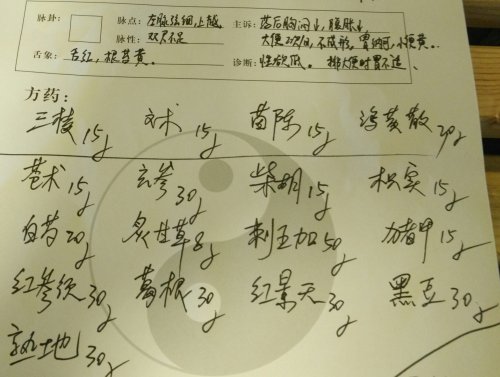 脉卦： 脉点：左脉弦细，上越 主诉：药后胸闷↓，腹胀↓
脉性：双尺不足 大便2次/日，不成形，胃纳可，小便黄。
舌象：舌红，根苔黄。 诊断：性欲低。排大便时胃不适。
方药：
三棱15g 文术15g 茵陈15g 泻黄散20g
苍术15g 玄参30g 柴胡15g 枳实15g
白芍20g 炙甘草8g 刺五加50g 猪甲15g
红参须30g 葛根30g 红景天30g 黑豆30g
熟地30g